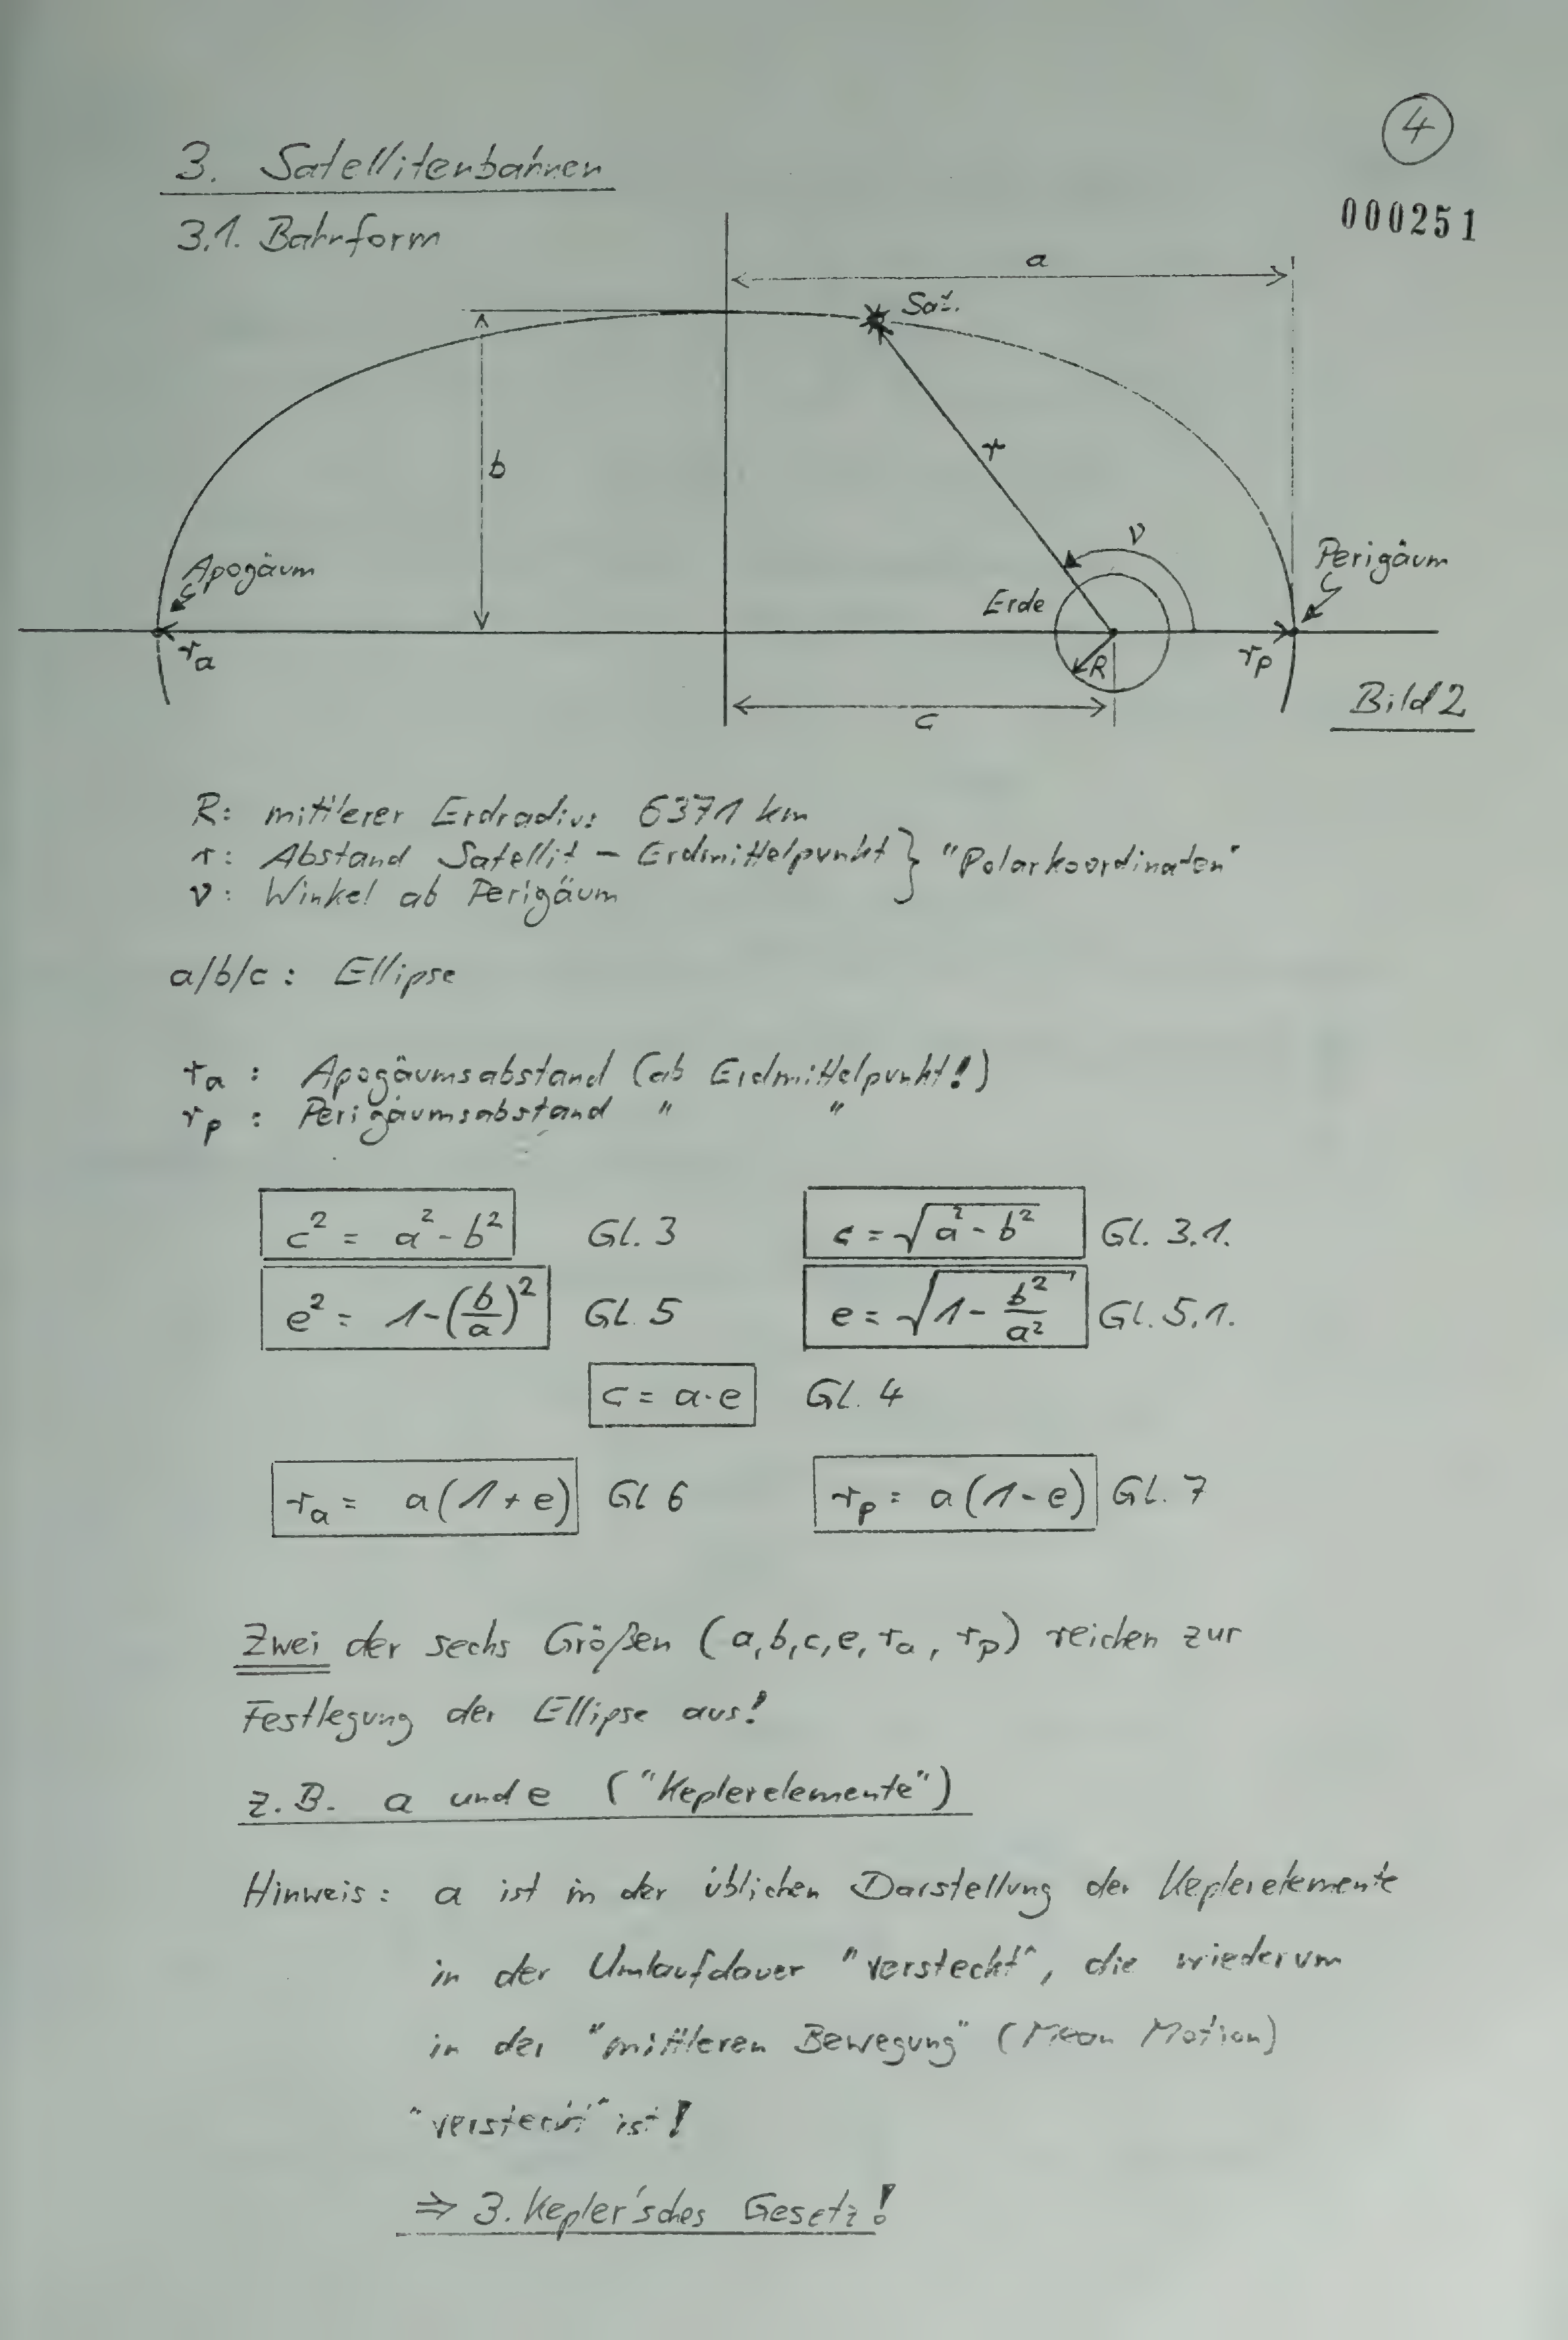 4
000251
3. Satellitenbahnen
3.1. Bahnform
a
Sat.
b
r
ν
Apogäum
Perigäum
Erde
ra
R
rp
c
Bild 2
R: mittlerer Erdradius 6371 km
r: Abstand Satellit – Erdmittelpunkt } "Polarkoordinaten"
ν: Winkel ab Perigäum
a/b/c : Ellipse
ra : Apogäumsabstand (ab Erdmittelpunkt!)
rp : Perigäumsabstand " "
c² = a² - b² Gl. 3 c = √(a² - b²) Gl. 3.1.
e² = 1-(b/a)² Gl. 5 e = √(1 - b²/a²) Gl. 5.1.
c = a·e Gl. 4
ra = a(1+e) Gl 6 rp = a(1-e) Gl. 7
Zwei der sechs Größen (a,b,c,e,ra, rp) reichen zur
Festlegung der Ellipse aus!
z.B. a und e ("Keplerelemente")
Hinweis: a ist in der üblichen Darstellung der Keplerelemente
in der Umlaufdauer "versteckt", die wiederum
in der "mittleren Bewegung" (Mean Motion)
"versteckt" ist!
⇒ 3. Kepler'sches Gesetz!